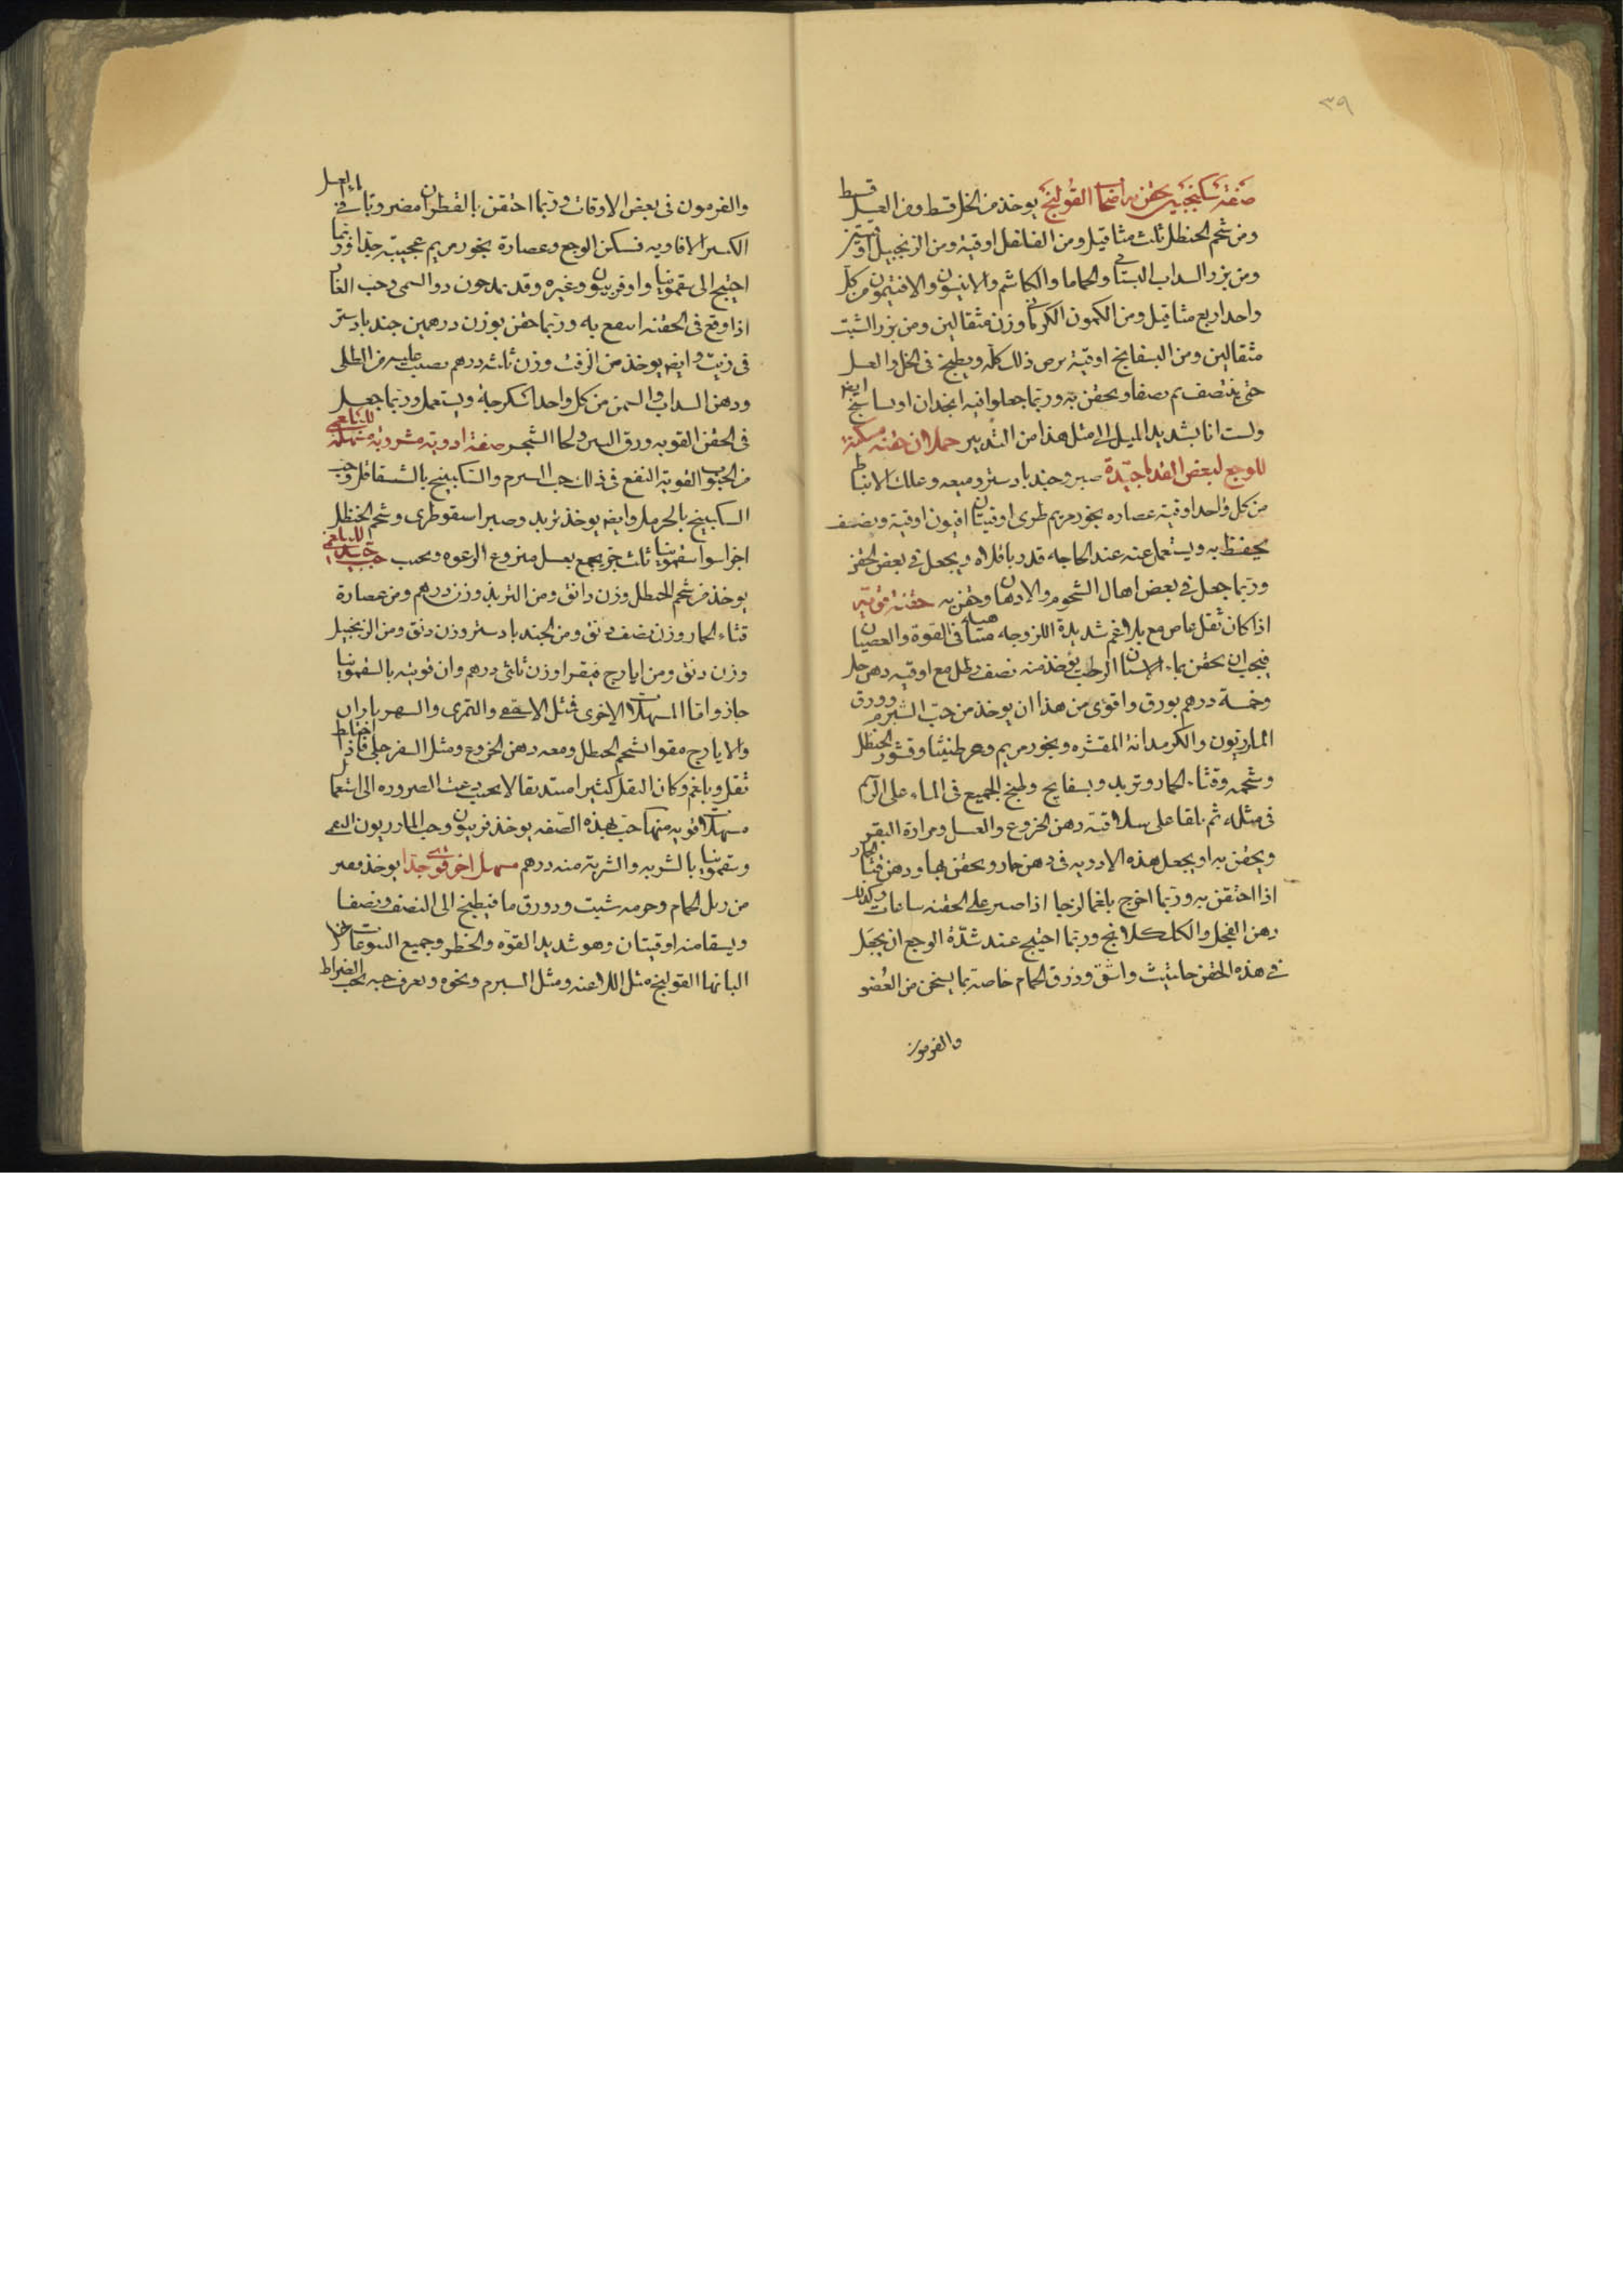 ٣٩
صفة سكنجبين يحقن به اصحاب القولنج يوخذ من الخل قسط ومن العسل قسط
ومن شحم الحنظل ثلث مثاقيل ومن الفلفل اوقية ومن الزنجبيل اوقيتين
ومن بزر السداب البستاني والحاما والكاشم والانيسون والافتيمون من كل
واحد اربع مثاقيل ومن الكمون الكرماني وزن مثقالين ومن بزر الشبت
مثقالين ومن البسفايج اوقية يرض ذلك كله ويطبخ في الخل والعسل
حتى ينتصف ثم يصفا ويحقن به وربما جعلوا فيه انجدان او ساسج ايض
ولست انا بشديد الميل الى مثل هذا من التدبير حملان حقنه مسكنة
للوجع لبعض القدما جيدة صبر وجندبادستر وميعه وعلك الانباط
من كل واحد اوقية عصاره بخور مريم طرى اوقيتان افيون اوقية ونصف
يحفظ به ويستعمل عنه عند الحاجه قدر باقلاه ويجعل في بعض الحقن
وربما جعل في بعض اهال الشحوم والادهان وحقن به حقنة قويه
اذا كان ثقل عاص مع بلاغم شديدة اللزوجه متناهيه في القوة والعصيان
فيجب ان يحقن بماء الاسنان الرطب يؤخذ منه نصف رطل مع اوقيه دهن حل
وخمسة درهم بورق واقوى من هذا ان يوخذ من حب الشبرم وورق
المازريون والكرمدانة المقشره وبخور مريم وعرطنيثا وقشور الحنظل
وشحمه وقثاء الحمار وتربد وبسفايج ولطبخ الجميع في الماء على الرسم
في مثله ثم يلقا على سلاقته دهن الخروع والعسل ومرارة البقر
ويحقن به او يجعل هذه الادويه في دهن حار ويحقن بها ودهن قثاء الحمار
اذا احتقن به وربما اخرج بلغما لزجا اذا صبر على الحقنه ساعات وكذلك
دهن الفجل والكلكلانج وربما احتيج عند شدة الوجع ان يجعل
في هذه الحقن حلتيث واشق وذرق الحمام خاصة بما يسخن من العضو
والفرمون
والفرمون في بعض الاوقات وربما احتقن بالقطران مضروبا في ماء العسل
الكثير الافاويه فسكن الوجع وعصارة بخور مريم عجيبة جدا وربما
احتيج الى سقمونيا واوفربيون وغيره وقد يمدحون دوا السمى وحب الغار
اذا وقع في الحقنه انتفع به وربما حقن بوزن درهمين جندبادستر
في زيت وايض يوخذ من الزفت وزن ثلثه درهم يصب عليه من الطلى
ودهن السداب والسمن من كل واحد اسكرجة ويستعمل وربما جعل
في الحقن القويه ورق التين ولحا الشجر صفة ادوية مشروبة مسهلة للبلغمى
من الحبوب القوية النفع في ذلك حب الشبرم والسكبينج بالشقاقل وحب
السكبينج بالحرمل وايض يوخذ تربد وصبر اسقوطرى وشحم الحنظل
اجزا سوا سقمونيا ثلث جز يجمع بعسل منزوع الرغوه ويحبب حب جيد للبلغمى
يوخذ من شحم الحنظل وزن دانق ومن التربد وزن درهم ومن عصارة
قثاء الحمار وزن نصف دنق ومن الجندبادستر وزن دنق ومن الزنجبيل
وزن دنق ومن ايارج فيقرا وزن ثلثى درهم وان قويته بالسقمونيا
جاز واما المسهلات الاخرى فمثل الاسقفى والتمرى والشهرياران
والايارج مقوا بشحم الحنظل ومعه دهن الخروع ومثل السفرجلى فاذا اختلط
ثقل وبلغم وكان الثقل كثيرا مستديقا لا يجيب دعت الضروره الى استعمال
مسهلات قويه منها حب بهذه الصفه يوخذ فربيون وحب المازريون
وسقمونيا بالسويه والشربة منه درهم مسهل اخر قوي جدا يوخذ
من زبل الحمام وحزمه شبت ودورق ما فيطبخ الى النصف ويصفا
ويسقا منه اوقيتان وهو شديد القوة والخطر وجميع اليتوعات
البانها القولنج مثل اللاعنه ومثل الشبرم ونحوه ويعرف حبه بحب الضراط